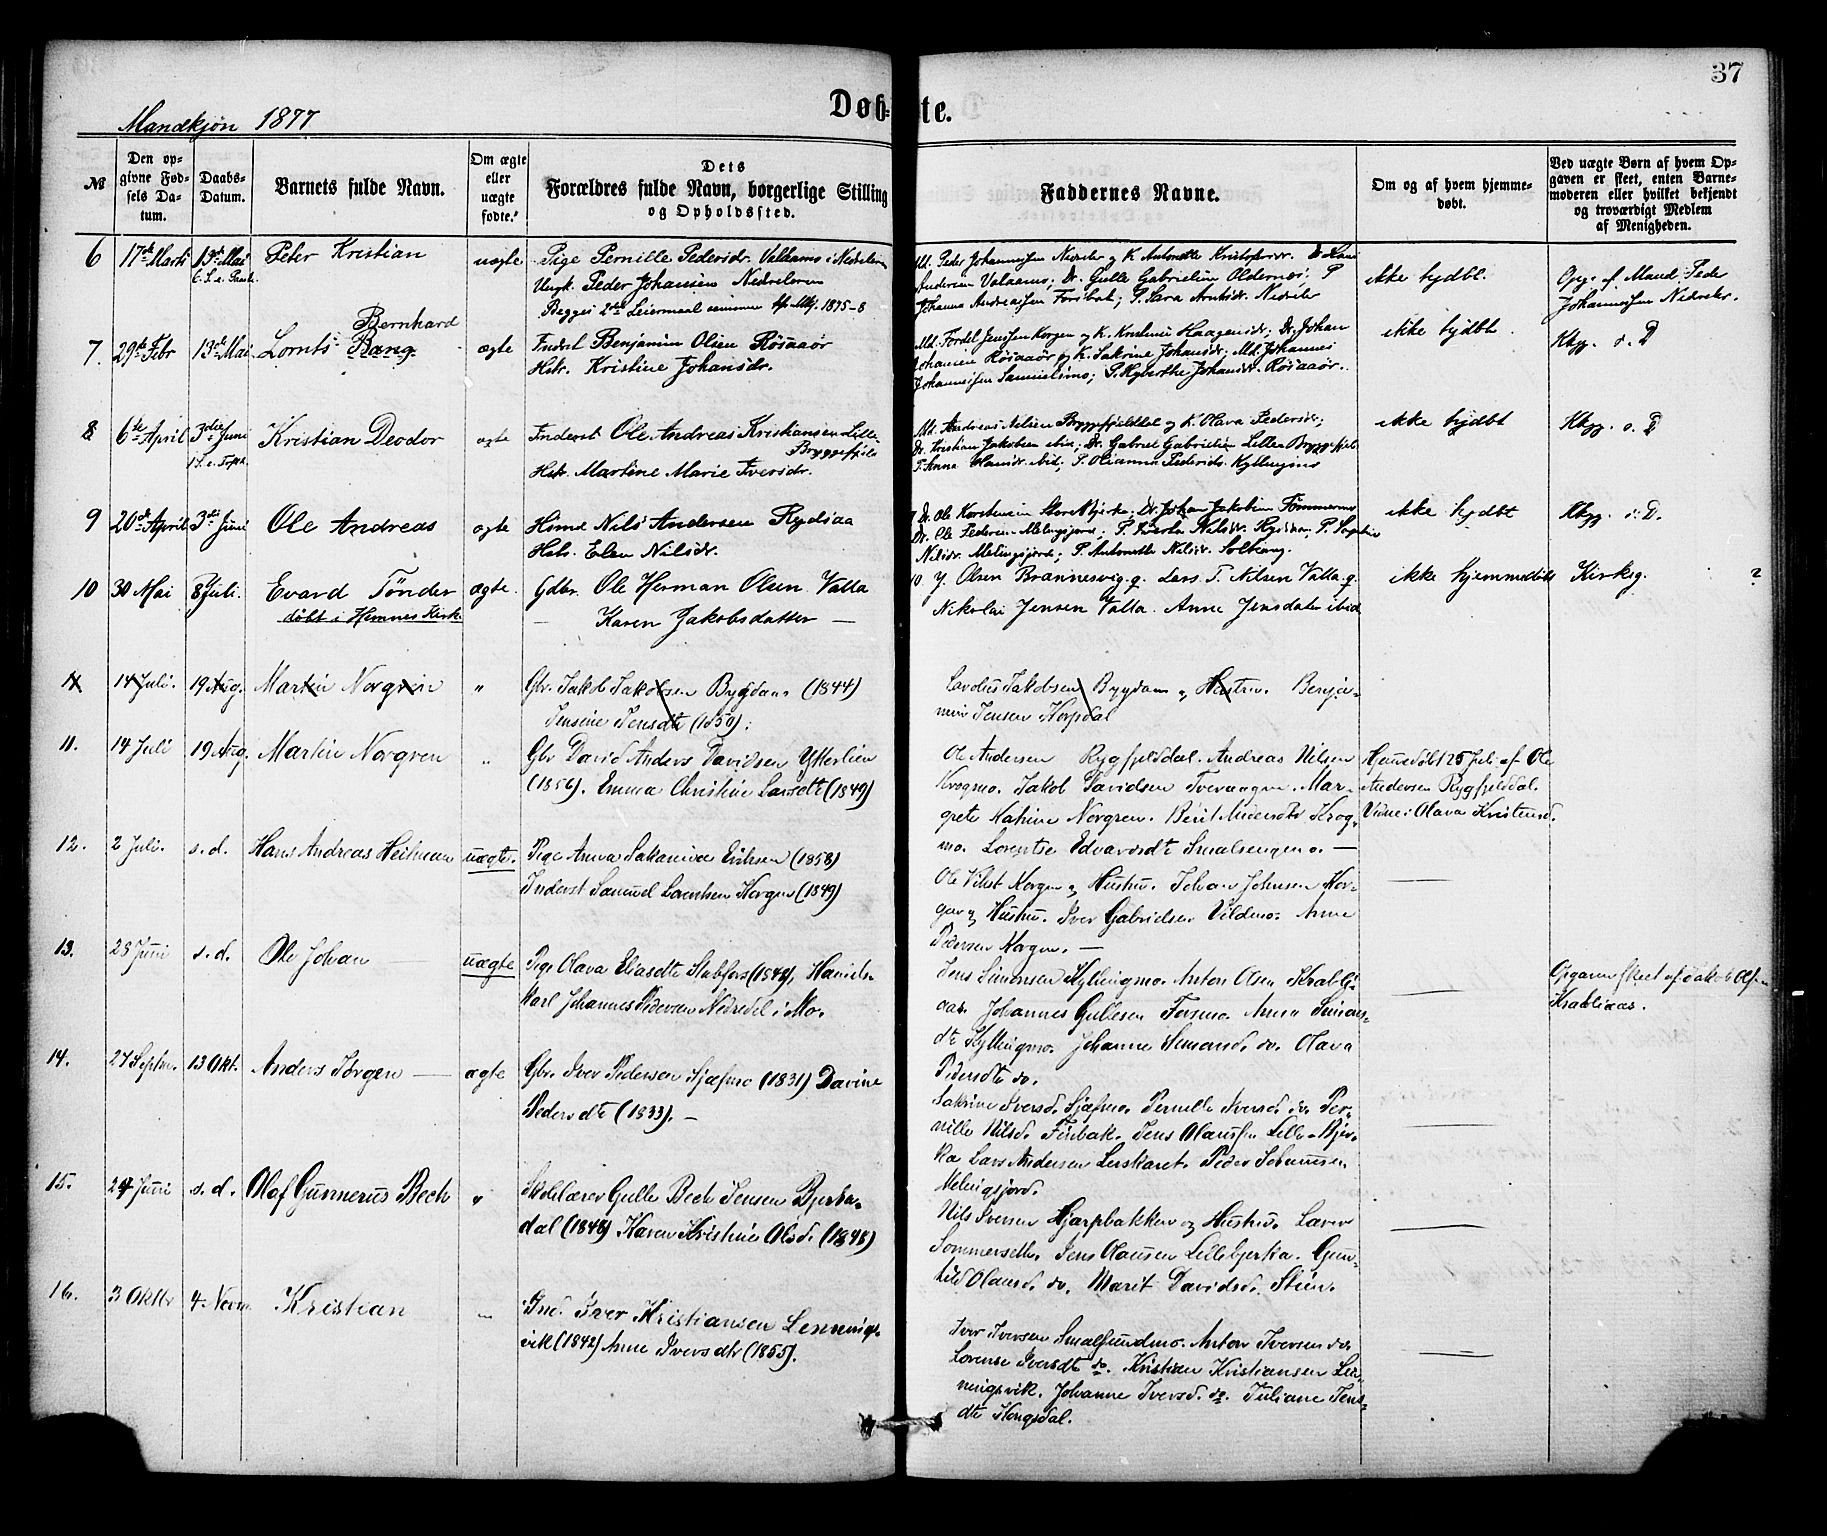 37
Døbte.
Mandkjøn 1877
№
Den opgivne Fødsels Datum.
Daabs-Datum.
Barnets fulde Navn.
Om ægte eller uægte fødte.
Dets Forældres fulde Navn, borgerlige Stilling og Opholdssted.
Faddernes Navne.
Om og af hvem hjemmedøbt.
Ved uægte Børn af hvem Opgaven er skeet, enten Barnemoderen eller hvilket bekjendt og troværdigt Medlem af Menigheden.
6 17de Marts 13de Mai Peter Kristian uægte Pige Pernille Pedersdr. i
Ungk. Peder Johansen
Begges 2det Leiermaal 1875-8
Johannesen K. Antonette Kristophersdr.
Andersen Dr. Gulle Gabrielsen P.
Johanna Andreasen P. Sara
ikke hjdbt.
Opg. af Peder
Johannesen
7. 29de Febr 13de Mai Lornts Bernhard Bang ægte Inderst Benjamin Olsen Røsaaør
Hstr. Kristine Johansdr.
Jenssen Korgen og K. Kristine Haagensdr; Dr. Johan
Røsaaør og K. Sakrine Johansdr; Md. Johannes
Johannessen P. Johansdr. Røsaaør.
ikke hjdbt.
Kbgg. s. D
8 6te April 3die Juni
1 S. e.
Kristian Deodor ægte Inderst Ole Andreas Kristiansen Lille
Bryggefjeld
Hstr. Martine Marie Iversdr.
Md. Andreas Nilsen og K. Olava Pedersdr;
Dr. Kristian Jakobsen ibid; Dr. Gabriel Gabrielsen Lille Bryggefjeld
P. Anna ibid; P. Olianna Pedersdr. Kyllingmo
ikke hjdbt
Kbgg. s. D
9 20de April 3die Juni Ole Andreas ægte Hsmd Nils Andersen Rydsaa
Hstr. Elen Nilsdr.
Dr. Ole Store Bjerka; Dr. Johan Jakobsen
Dr. Ole Pedersen P. Nilsdr. P.
Nilsdr. P. Antonette Nilsdr.
ikke hjdbt
Kbgg. s. D.
10 30 Mai 8 Juli. Evard Tønder
døbt i Hemnes Kirke.
ægte. Gdbr. Ole Herman Olsen Valla
— Karen Jakobsdatter —
10 J. Olsen Brannesvig. g. Lars T. Nilsen Valla. g.
Nikolai Jensen Valla. Anne Jensdater ibid
ikke hjemmedøbt Kirkeg. ?
11 14 Juli. 19 Aug. Martin Norgren " Gbr. Jakob Jakobsen Bygdaas (1844)
Jensine Jensdtr (1850).
Carolius Jakobsen Bygdaas og Hustru. Benja-
min Jensen Korpdal
11. 14 Juli 19 Aug. Martin Norgren " Gbr David Anders Davidsen Ytterlien
(1856). Emma Christine Larsdtr (1849)
Ole Andersen Rygfjelddal. Andreas Nilsen
Krogmo. Jakob Davidsen Tveraagen. Mar-
grete Katrine Norgren. Berit Andersdtr Krog-
mo. Lorentse Edvardsdtr Smalsengemo. —
Hjemdøbt 25 Juli af Ole
Andersen Rygfjelddal.
Vidne: Olava Kristensd.
12. 2 Juli. s. d. Hans Andreas Heitmann uægte. Pige Anna Eriksen (1858)
Inderst Samuel Lorentsen Korgen (1849)
Ole Korgen og Hustru. Johan Johnsen Kor-
gen og Hustru. Iver Gabrielsen Vildmo. Anne
Pedersen Korgen. —
—
13. 28 Juni s. d. Ole Johan — uægte Pige Olava Eliasdtr Stabfors (1848), Handels-
karl Johannes Pedersen Nedredal i Mo.
Jens Simonsen Kyllingmo. Anton Olsen Krabli-
aas. Johannes Gullesen Forsmo. Anna Simons-
dtr Kyllingmo. Johanne Simonsd. do. Olava
Pedersdtr do.
—
Opgaven skeet af Jakob Olsen
Krabliaas.
14. 27 Septbr. 13 Okt. Anders Jørgen — ægte Gbr. Iver Pedersen Sjæfmo (1831) Davine
Pedersdtr (1833). —
Sakrine Iversd. Sjæfmo. Pernille Iversd. do. Per-
nille Nilsd. Finbak. Jens Olaussen Lille-Bjer-
ka Lars Andersen Leskaret. Peder Johannesen
—
15. 24 Juni s. d. Olaf Gunnerus Bech " Skolelærer Gulle Bech Jensen Bjerka-
dal (1848) Karen Kristine Olsd. (1848)
Nils Iversen Hjarpbakken og Hustru. Laver
Sommerseth. Jens Olausen Lillebjerka. Gun-
hild Olausd. do. Marit Davidsd. Stien.
—
16. 3 Oktbr 4. Novem. Kristian " Ind. Iver Kristiansen Lennings-
vik (1842) Anne Iversdtr (1855).
Iver Iversen Smalsundmo. Anton Iversen do.
Lorense Iversdtr do. Kristian Kristiansen Len-
ningsvik. Johanne Iversd. do. Juliane Jens-
dtr Kongsdal.
—